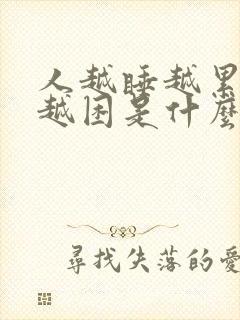 人越睡越累
越困是什麽
尋找失落的愛